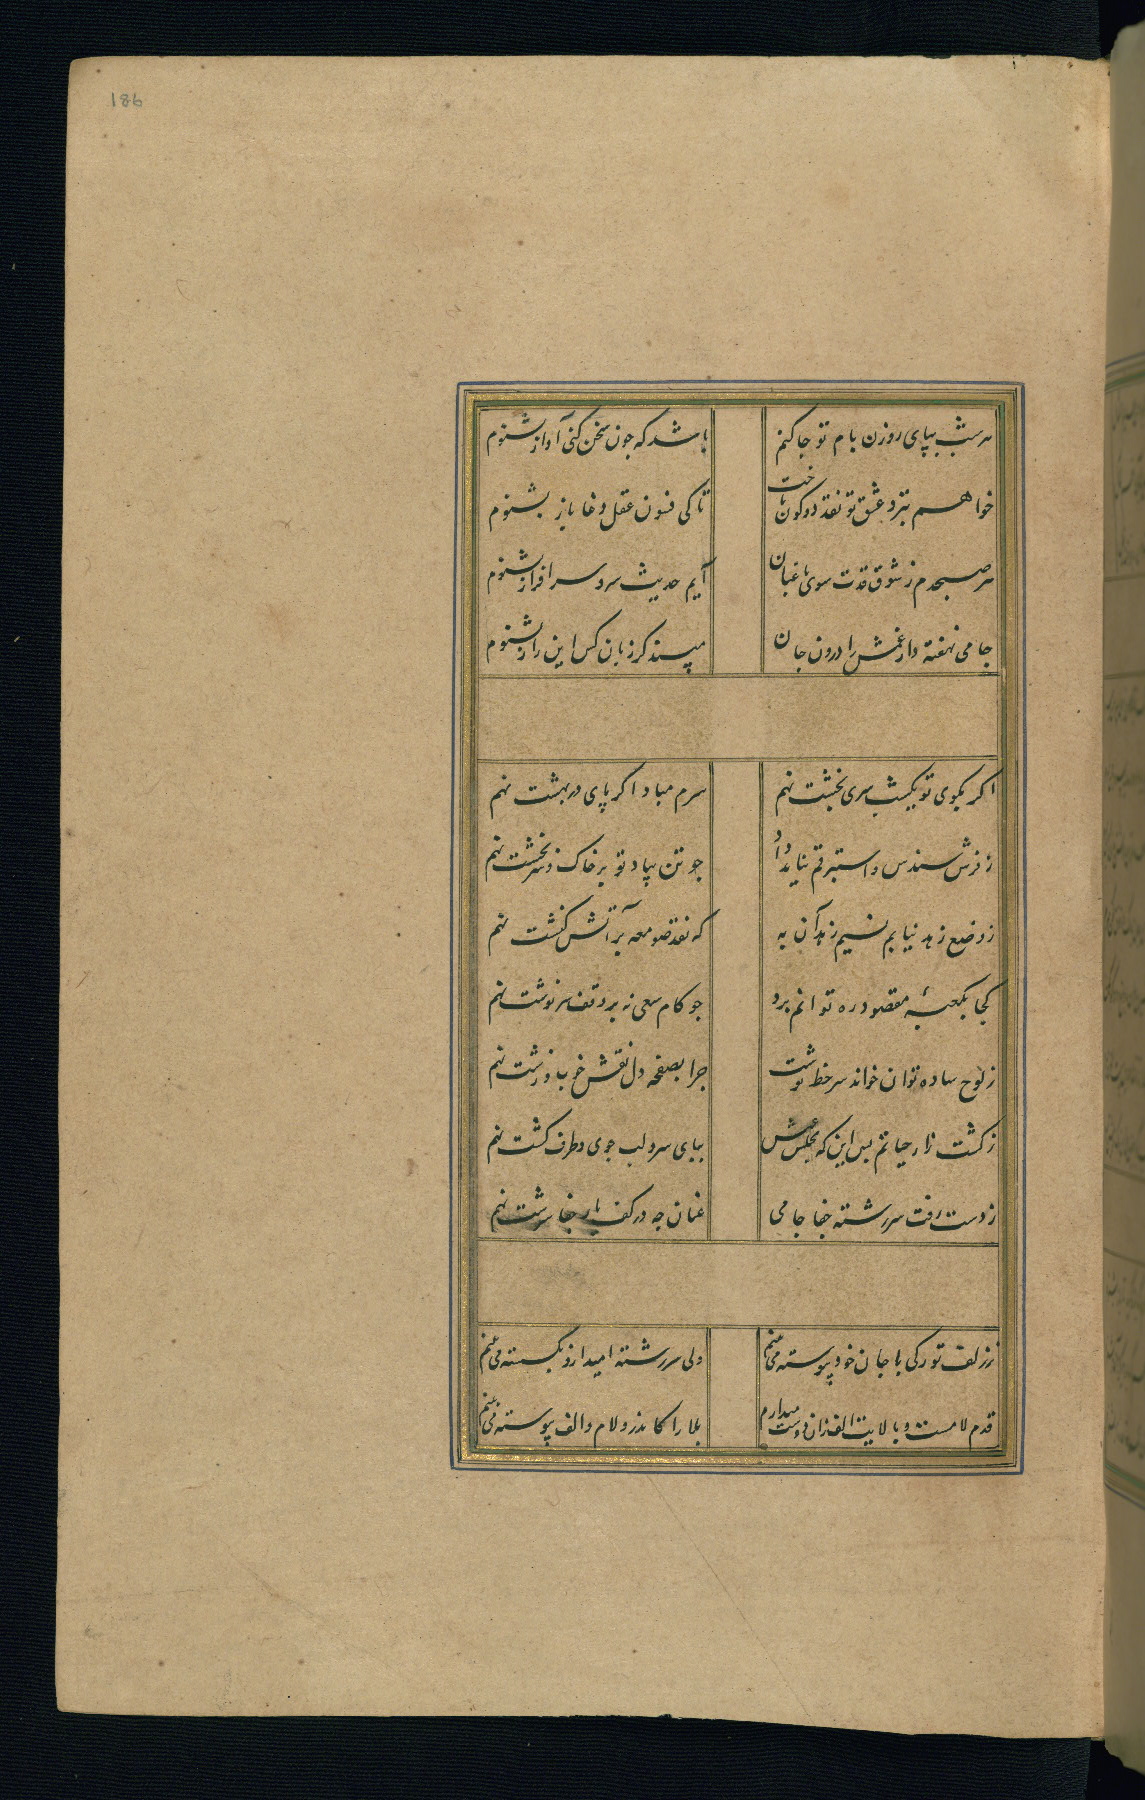 186
هر شب بپای روزن بام تو جا کنم باشد که چون سخن کنی آواز بشنوم
خواهم بنرد عشق تو نقد دو کون باخت تا کی فسون عقل دغا باز بشنوم
هر صبحدم ز شوق قدت سوی باغبان آیم حدیث سرو سرافراز بشنوم
جامی نهفته دار غمش را درون جان مپسند کز زبان کس این راز بشنوم
اگر بکوی تو یکشب سری بخشت نهم سرم مباد اگر پای در بهشت نهم
ز فرش سندس و استبرقم نیاید یاد چو تن بیاد تو بر خاک و سر بخشت نهم
ز وضع زهد نیابم نسیم زهد آن به که نقد صومعه بر آتش کنشت نهم
کجا بکعبهٔ مقصود ره توانم برد چو کام سعی نه بر وقف سرنوشت نهم
ز لوح ساده توان خواند سر خط نوشت چرا بصفحه دل نقش خوب و زشت نهم
ز کشت زار حیاتم بس این که مجلس عیش بپای سرو لب جوی و طرف کشت نهم
ز دست رفت سر رشته جفا جامی عنان چه در کف یار جفا سرشت نهم
ز زلف تو رگی با جان خود پیوسته می بینم ولی سر رشته امید ازو بگسسته می بینم
قدم لامست و بالایت الف زان دوست میدارم بلا را کاندرو لام و الف پیوسته می بینم